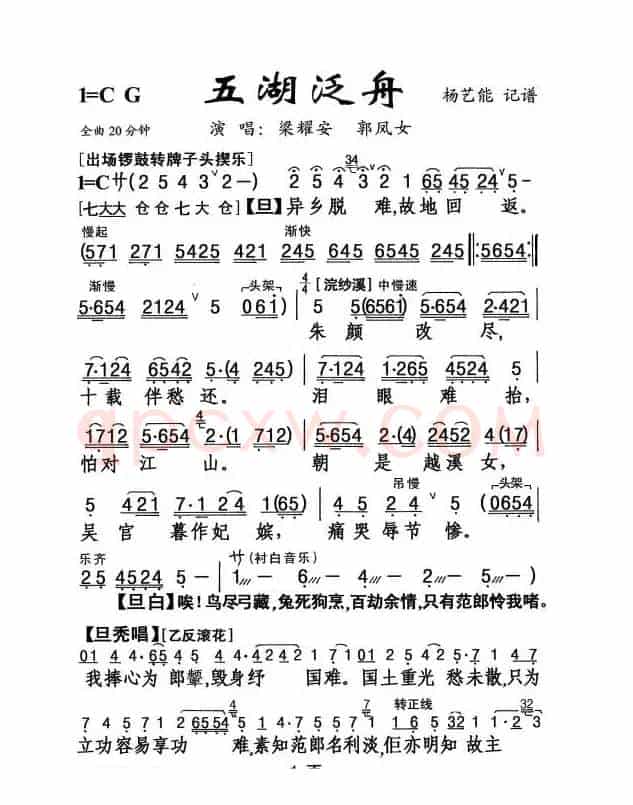 1=C G 五湖泛舟 杨艺能 记谱
全曲20分钟 演 唱: 梁耀安 郭凤女
[出场锣鼓转牌子头揳乐] 34
1=C サ( 2 5 4 3 ˅ 2 — — ) 2 2 5 4 3 ˅ 2 1 65 45 24 ˅ 5 -
[七大大 仓 仓 七 大 仓] 【旦】异乡脱 难,故地回 返。
慢起 渐快
(571 271 5425 421 245 645 6545 245 :5654:
渐慢 头架 4/4 [浣纱溪] 中慢速
5·654 2124 ˅ 5 061) 5 5(6561) 5·654 2·421
朱 颜 改 尽,
7·124 6542 5·(4 245) 7·124 1·265 4524 5
十载 伴愁 还。 泪 眼 难 抬,
1712 5·654 2·(1 712) 5·654 2·(4) 2452 4(17)
怕对 江 山。 朝 是 越溪 女,
吊慢 头架
5 421 7·1 24 1(65) 4 5 24 ˅ 5 (0654
吴 官 暮作妃 嫔, 痛 哭 辱节 惨。
乐齐 サ(衬白音乐)
25 4524 5 - 1 6 4 5
【旦白】唉!鸟尽弓藏,兔死狗烹,百劫余情,只有范郎怜我啫。
【旦秃唱】[乙反滚花]
我捧心为 郎颦,毁身纾 国难。国土重光 愁未散,只为
转正线
立功容易享功 难,素知范郎名利淡,佢亦明知 故主